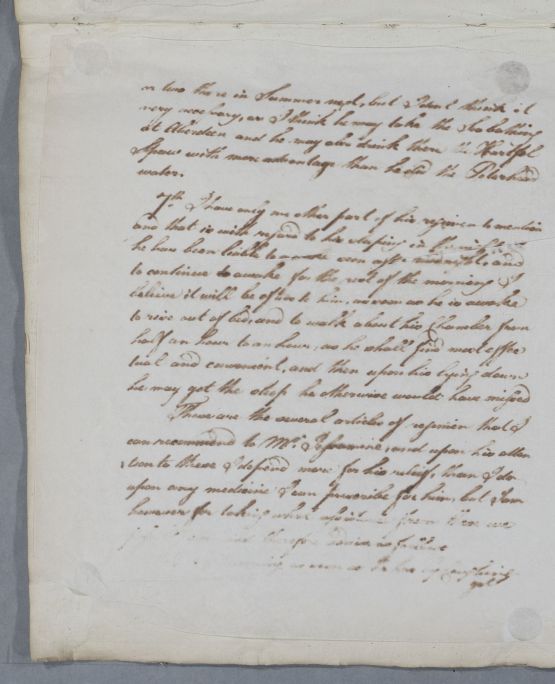 or two there in Summer next, but I don't think it
very necessary, as I think he may take the Sea bathing
at Aberdeen and he may also drink there the Hartfel
Spaw with more advantage than he did the Peterhead
water.
7th I have only one other part of his regimen to mention
and that is with regard to his sleeping in
he has been liable to awake soon after and
to continue awake for the rest of the morning I
believe it will be of use to him, as soon as he is awake
to rise out of bed, and to walk about his Chamber from
half an hour to an hour, as he shall find most effec
tual and convenient, and then upon his lying down
he may get the sleep he otherwise would have missed
These are the several articles of regimen that I
can recommend to Mr. and upon his atten
tion to these I depend more for his relief, than I do
upon any medicine I can prescribe for him, but I am
however for taking what assistance from them we
therefore as follows
as soon as he has